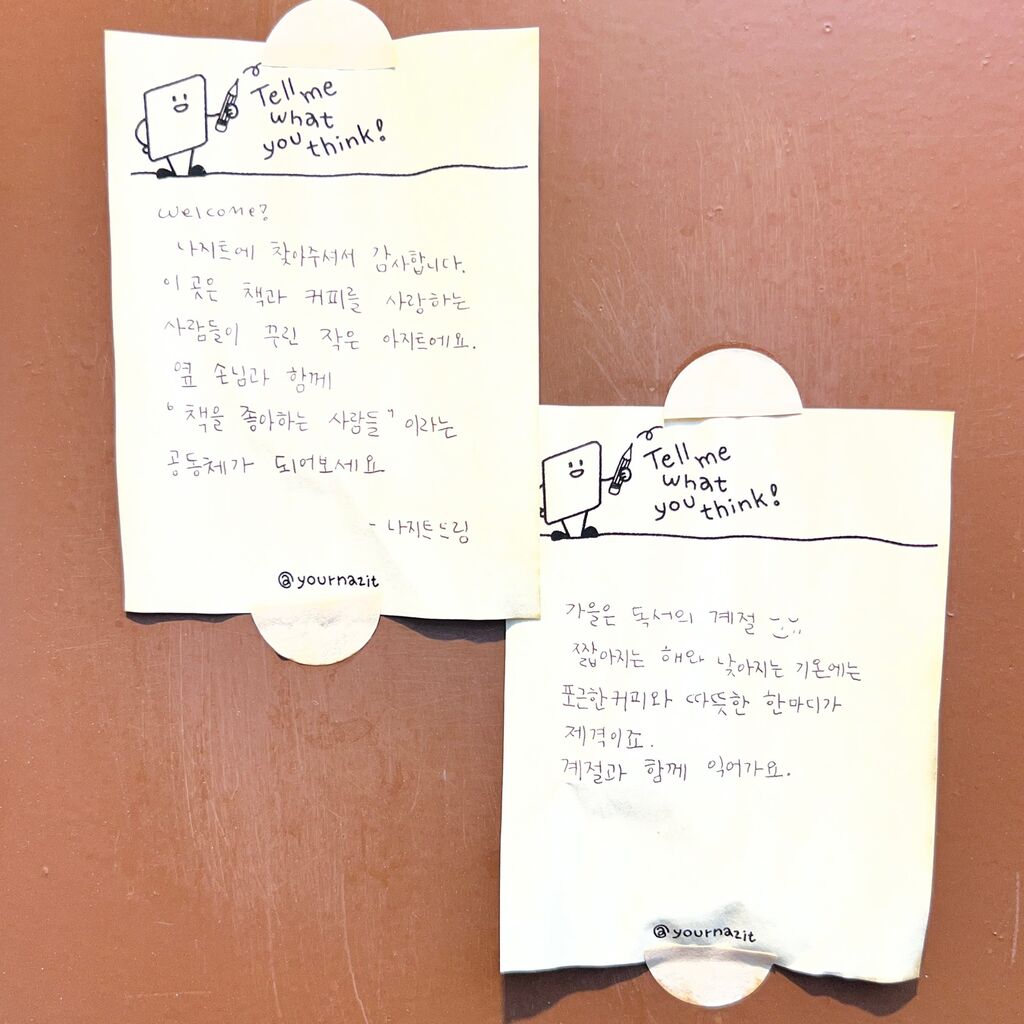 Tell me
what
you think!
Welcome?
나지트에 찾아주셔서 감사합니다.
이 곳은 책과 커피를 사랑하는
사람들이 꾸린 작은 아지트에요.
옆 손님과 함께
"책을 좋아하는 사람들" 이라는
공동체가 되어보세요
- 나지트드림
@yournazit
Tell me
what
you think!
가을은 독서의 계절
짧아지는 해와 낮아지는 기온에는
포근한 커피와 따뜻한 한마디가
제격이죠.
계절과 함께 익어가요.
@yournazit